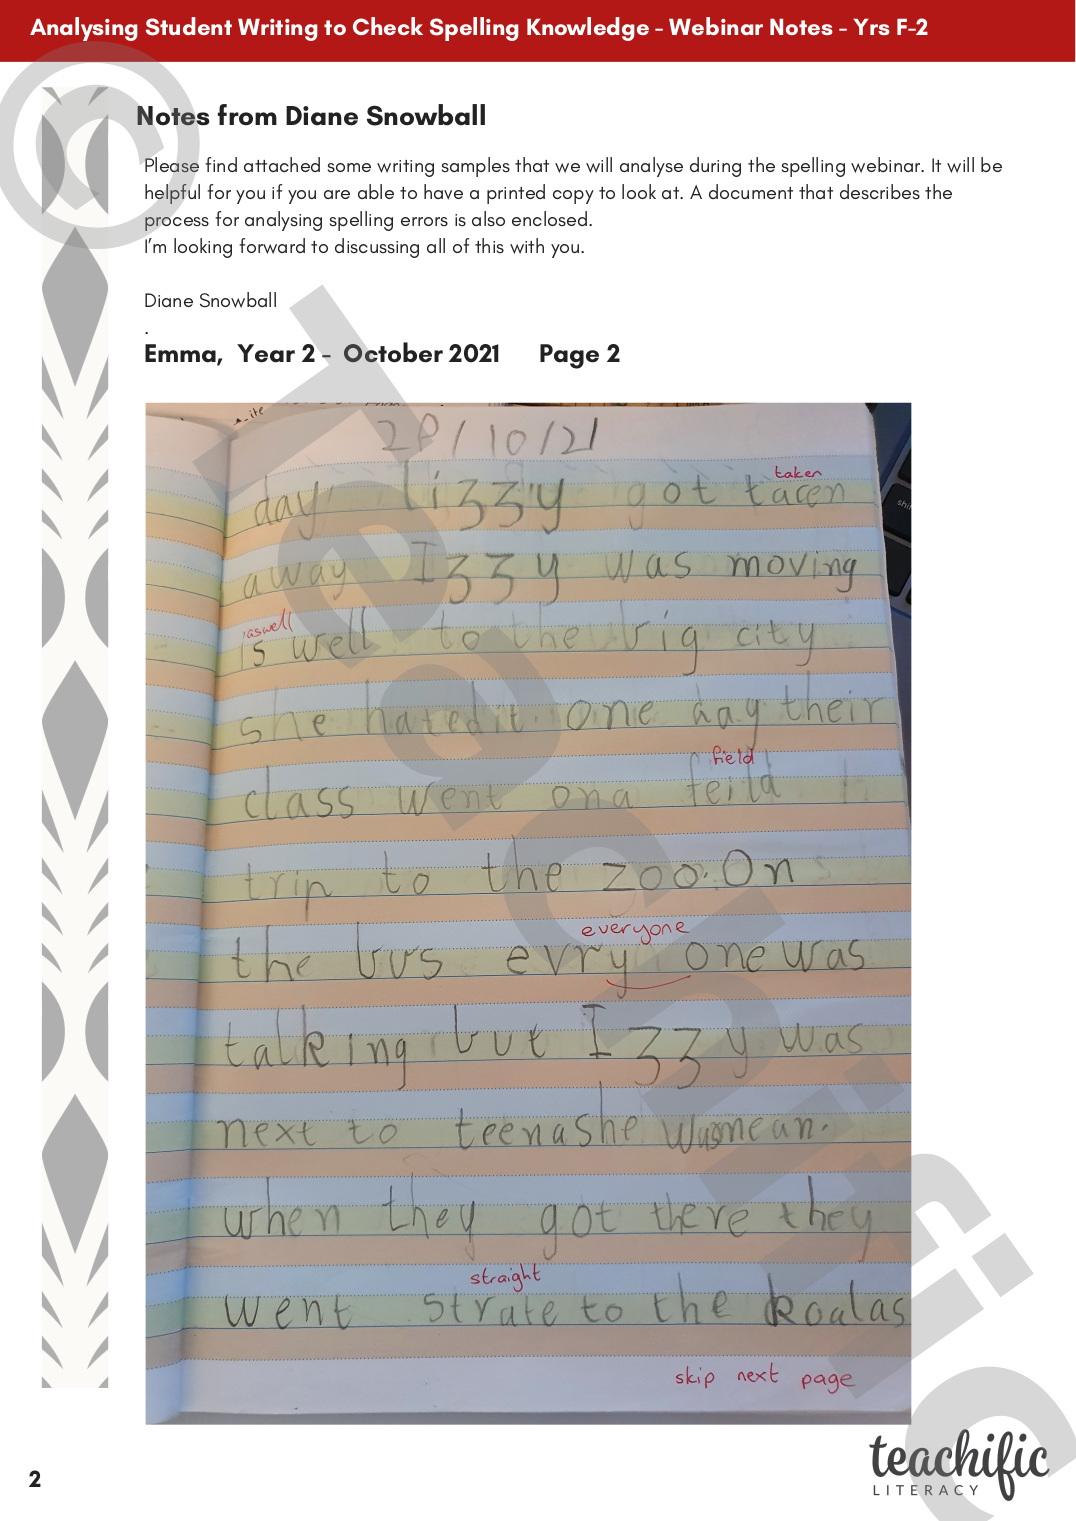 Analysing Student Writing to Check Spelling Knowledge - Webinar Notes - Yrs F-2
Notes from Diane Snowball
Please find attached some writing samples that we will analyse during the spelling webinar. It will be
helpful for you if you are able to have a printed copy to look at. A document that describes the
process for analysing spelling errors is also enclosed.
I'm looking forward to discussing all of this with you.
Diane Snowball
.
Emma, Year 2 - October 2021 Page 2
28/10/21
taken
day lizzy got tacen
away Izzy was moving
aswell
is well to the big city
she hated it. one day their
field
class went on a feild
trip to the zoo. On
everyone
the bus evry one was
talking but Izzy was
next to teena she was mean.
when they got there they
straight
went strate to the koalas
skip next page
2
teachific
LITERACY
©Teachific